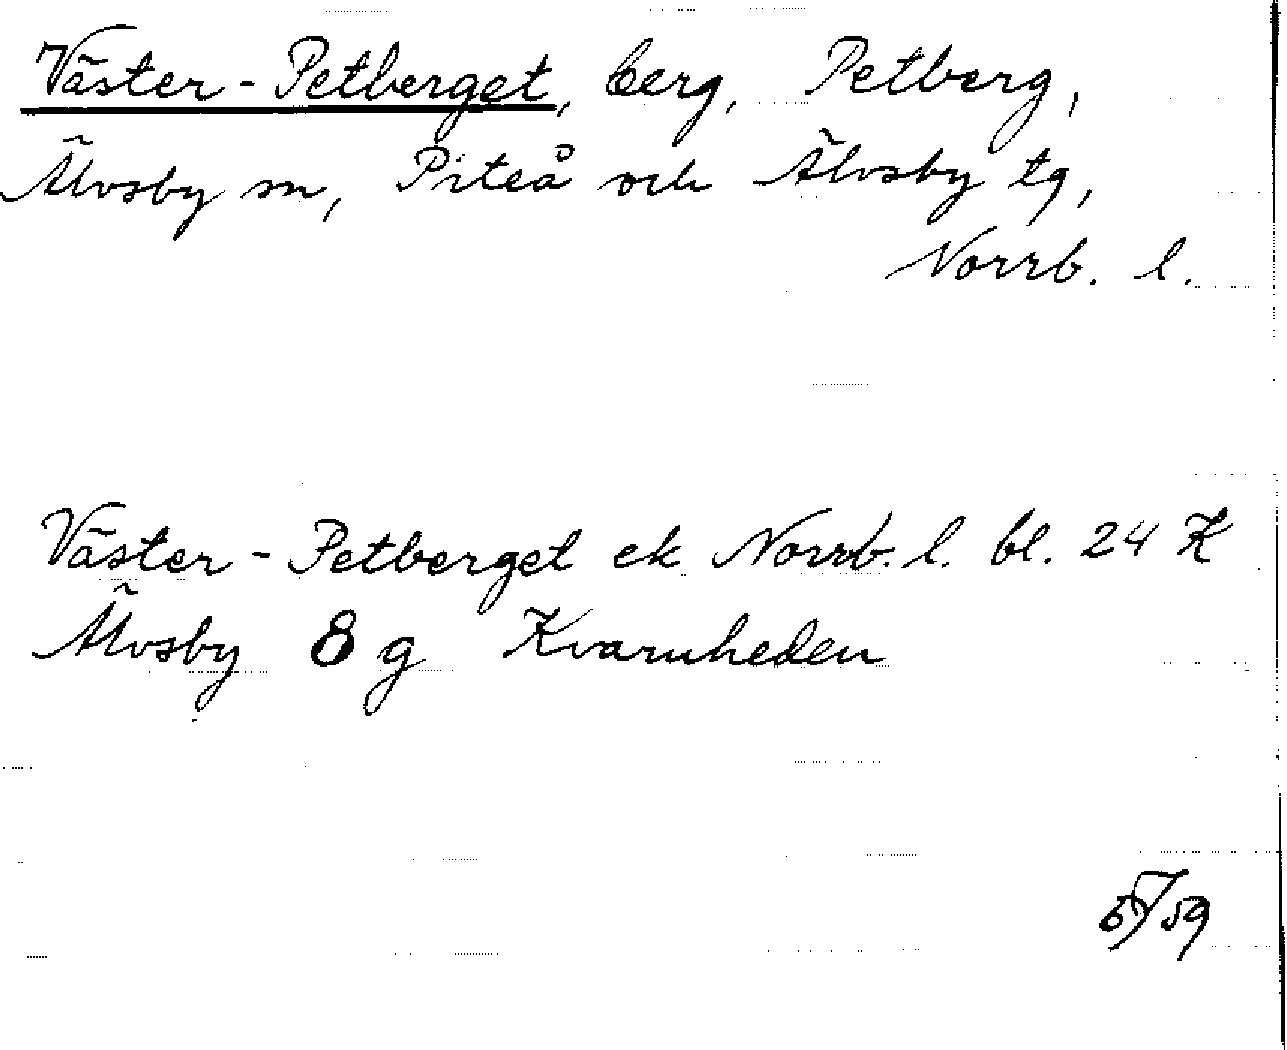 Väster-Petberget, berg, Petberg,
Älvsby sn, Piteå och Älvsby tg,
Norrb. l.
Väster-Petberget ek Norrb. l. bl. 24 K
Älvsby 8 g Kvarnheden